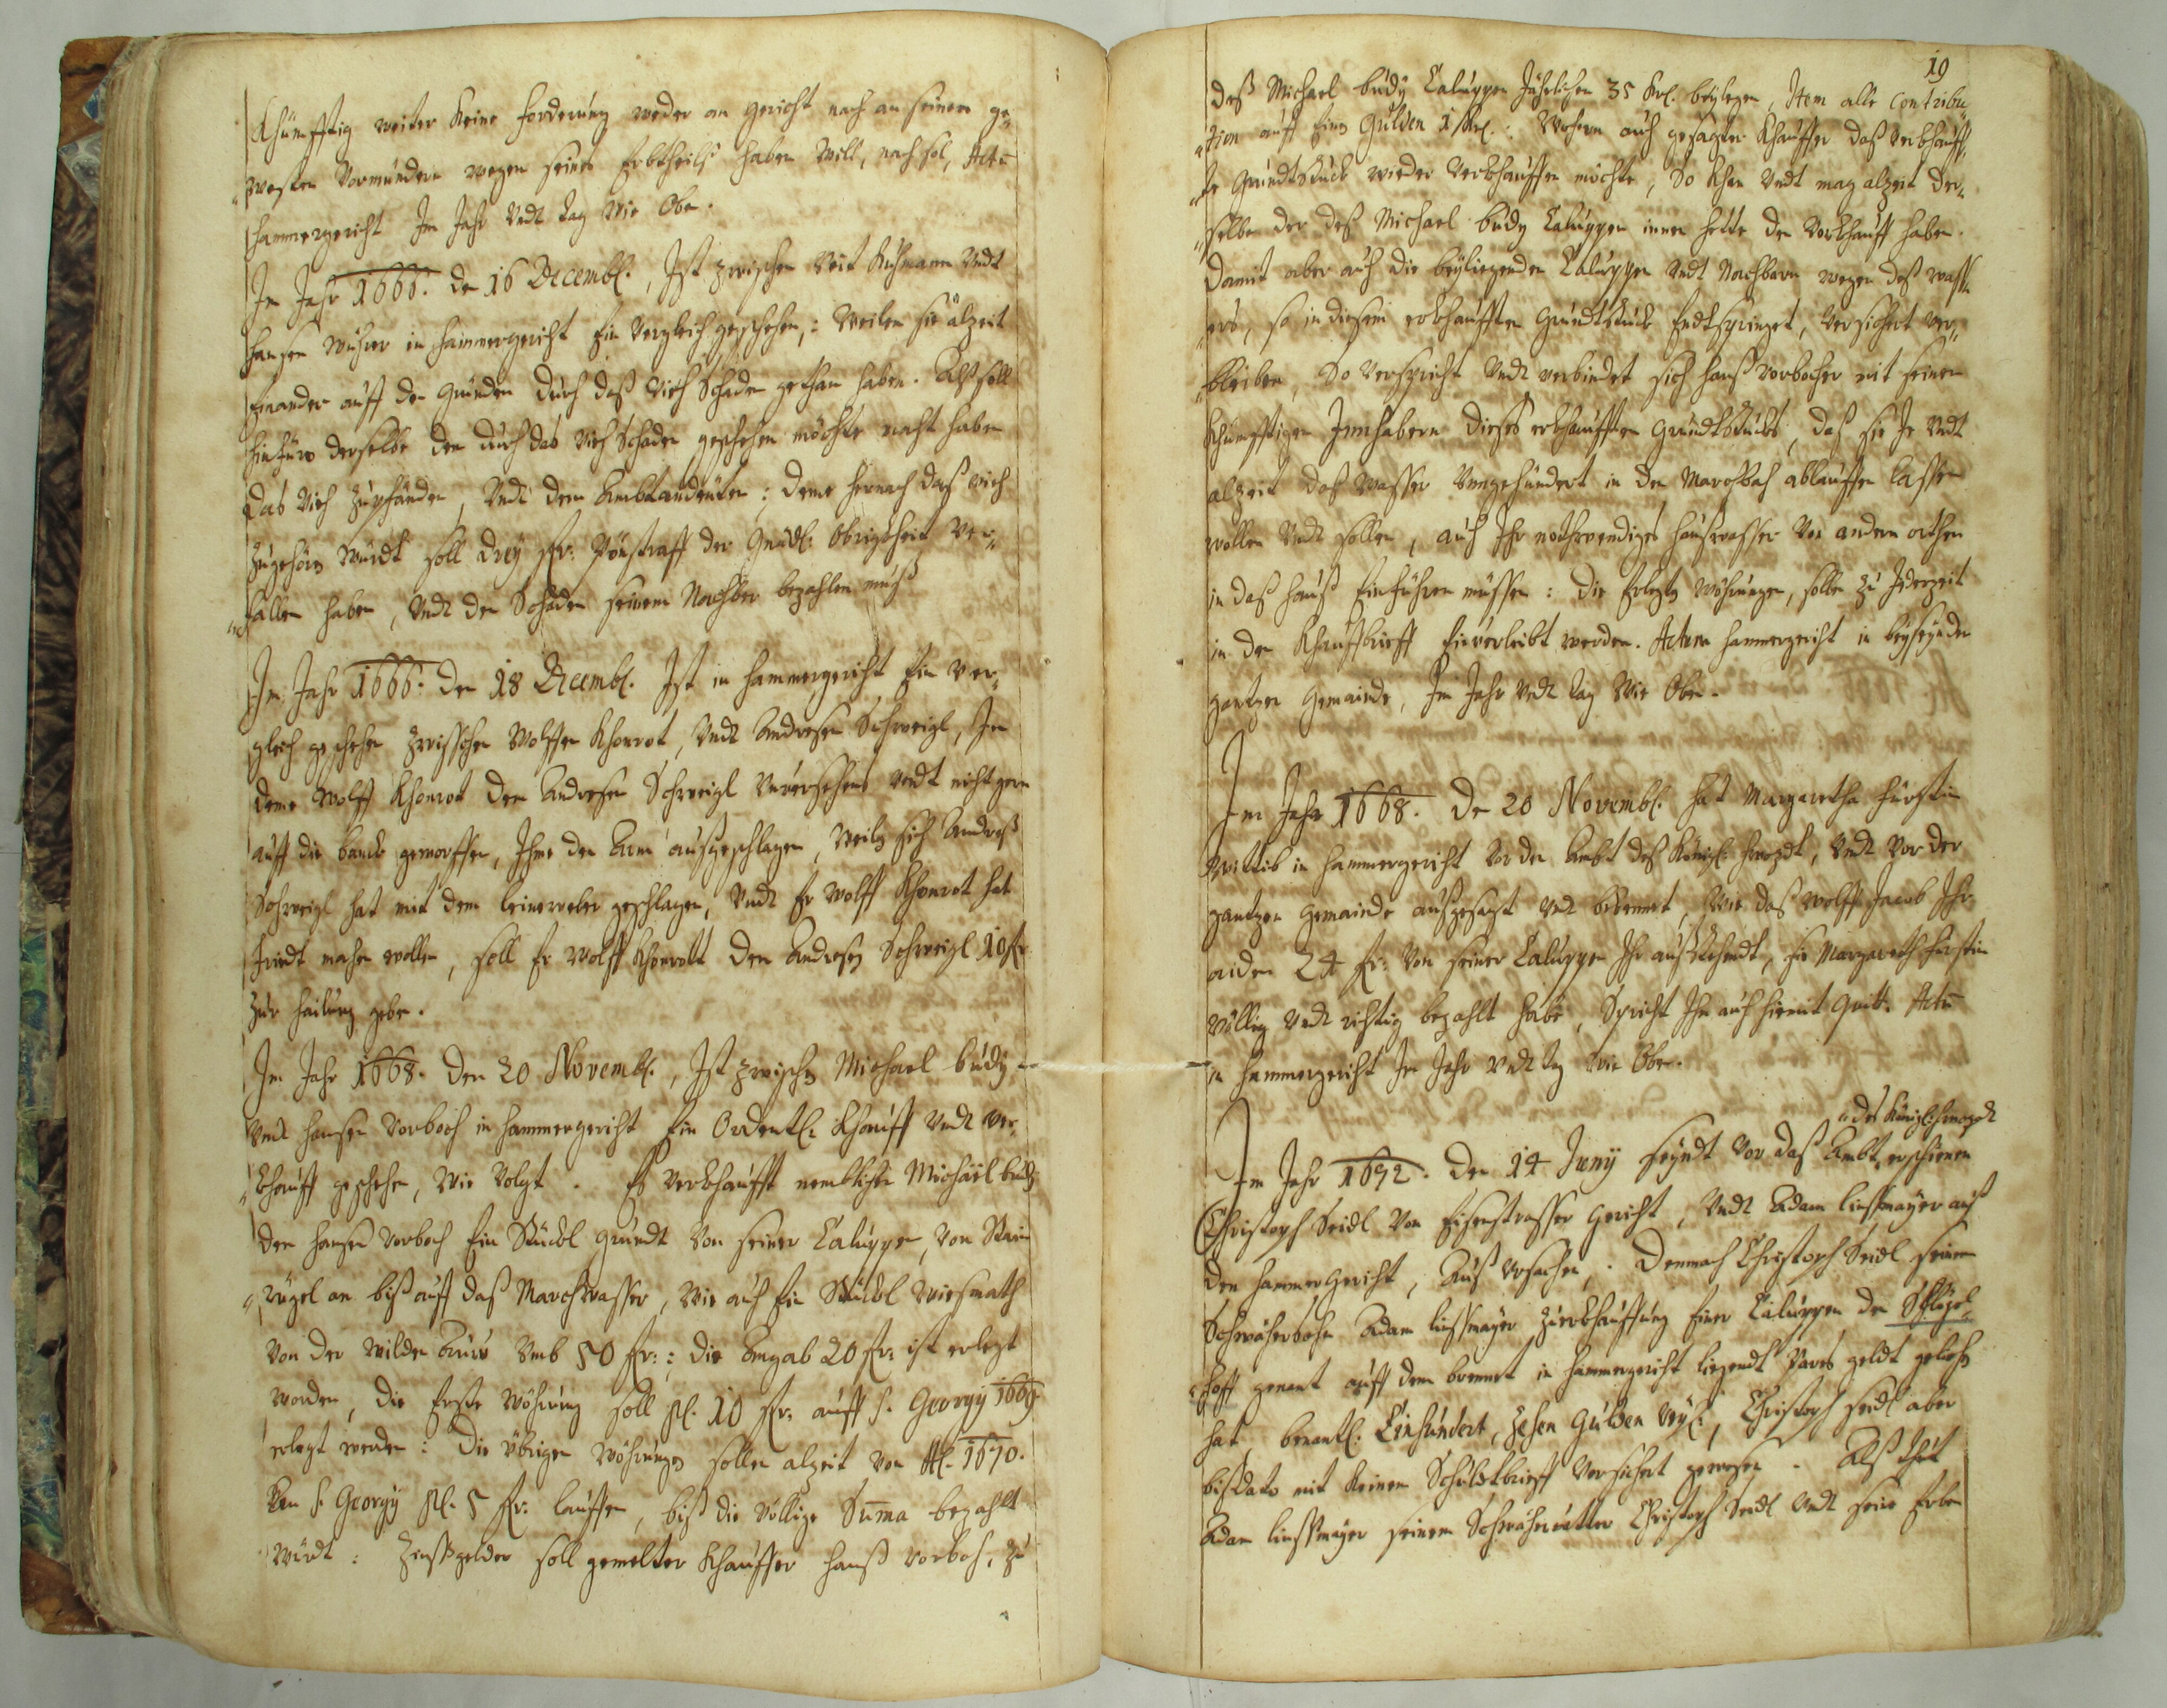 Khünfftig weiter keine forderung weder an gericht noch an seinen ge„
„westen Vormundern wegen seines Erbtheils haben will, noch sol, Actu
hammergericht Im Jahr Vndt tag wie Obe.
Im Jahr 1666. den 16 Decembl., Ist zwischen Veit Kuhmann Vndt
hansen in hammergericht Ein Vergleich geschehen,: weilen sie alzeit
Einander auff den gründen durch daß Vieh Schaden gethan haben. Alß soll
hinfüro derselbe dem durch das Vieh Schaden geschehen möchte macht haben
das Vieh zupfänden, Vndt dem Ambt andeuten: deme hernach daß Vieh
zugehörn würdt soll drey fr: Pönstraff der Gnädl: Obrigkheit Ver„
„fallen haben, Vndt den Schaden seinem Nachber bezahlen muß
Im Jahr 1666. den 18 Decembl. Ist in hammergericht Ein ver„
gleich geschehen zwischen Wolffen Khonrot, Vndt Andresen Schweigl, In
deme Wolff Khonrot den Andresen Schweigl Vnversehens vndt nicht gern
auff die banck geworffen, Ihme den Arm außgeschlagen, weiln sich Andreß
Schweigl hat mit dem leinweber geschlagen, Vndt Er Wolff Khonrot hat
friedt machen wollen, soll Er Wolff Khonrott dem Andresen Schweigl 10 fr
zur hailung geben.
Im Jahr 1668. den 20 Novembl., Ist zwischen Michael budy
Vndt hansen Vorboch in hammergericht Ein Ordentl: Khauff Vndt ver„
„khauff geschehen, wie Volgt. Es verkhaufft nemblichen Michael budy
dem hansen Vorboch Ein Stückl grundt von seiner Caluppen, von Stain
rügel an biß auff daß Marchwasser, wie auch Ein Stückl wiesmath
von der wilden Auw vmb 50 fr:: die Angab 20 fr: ist erlegt
worden, die Erste wöhrung soll pl. 10 fr: auff S. Georgy 1669
erlegt werden: die übrigen wöhrungen sollen alzeit von Al. 1670.
Am S. Georgy pl. 5 fr: lauffen, biß die völlige Suma bezahlt
würdt: Zinßgelder soll gemelter Khauffer hanß vorboch, zu
19
deß Michael budy Caluppen Jährlichen 35 krl. beylegen, Item alle Contribu„
„tion auff Einen Gulden 1 krl.: Wofern auch gesagter Khauffer daß verkhauff„
„te grundtstuck wieder verkhauffen möchte, So khan Vndt mag alzeit der„
„selbe der deß Michael budy Caluppen innen hette den Vorkhauff haben.
damit aber auch die beyliegenden Caluppen Vndt Nachbarn wegen deß wass„
„ers, so in diesem erkhaufften grundtstuck Endtspringet, versichert ver„
„bleiben, So verspricht Vndt verbindet sich hanß vorbocher mit seinen
khünfftigen Innhabern dieses erkhaufften grundtstucks, daß sie Je Vndt
alzeit daß wasser Vnngehündert in den Marchbach ablauffen lassen
wollen Vndt sollen, auch Ihr nothwendiges hauswasser von andern orthen
in daß hauß Einführen müssen: die Erlegte wöhrungen, sollen zu Jederzeit
in den Khauffbrieff Einverleibt werden. Actum hammergericht in beyseynden
gantzer Gemainde, Im Jahr Vndt tag wie Oben.
Im Jahr 1668. den 20 Novembl. hat Margaretha fürstin
Wittib in hammergericht vor den Ambt deß Königl: hwozdt, Vndt vor der
gantzen Gemainde außgesagt Vndt bekennet, wie daß Wolff Jacob Ihr
aiden 24 fr: von seiner Caluppen Ihr außstehendt, sie Margareth fürstin
völlig Vndt richtig bezahlt habe, Spricht Ihn auch hiemit Quitt. Actu
in hammergericht Im Jahr Vndt tag wie Oben.
„des Königl: hwozdt
Im Jahr 1672. den 14 Juny seyndt vor daß Ambt erschienen
Christoph Seidl von Eisenstrasser gericht, Vndt Adam linßmayer auß
den hammergericht, Auß vrsachen,. Demnach Christoph Seidl seinem
Schwäherbohn Adam linßmayer zuerkhauffung Einer Caluppen der Schlögel„
„hoff genant auff dem brennet in hammergericht liegendt Pares geldt geliehen
hat benantl: Einhundert, zehen Gulden , Christoph seidl aber
bißdato mit keinem Schuldtbrieff versichert gewesen. Alß thut
Adam linßmayer seinem Schwähervatter Christoph Seidl Vndt seine Erben